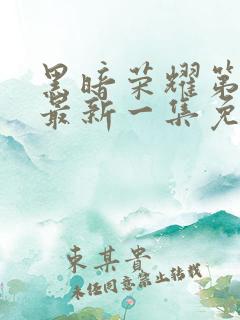 黑暗荣耀第
最新一集免
東某貴
未经同意禁止转载